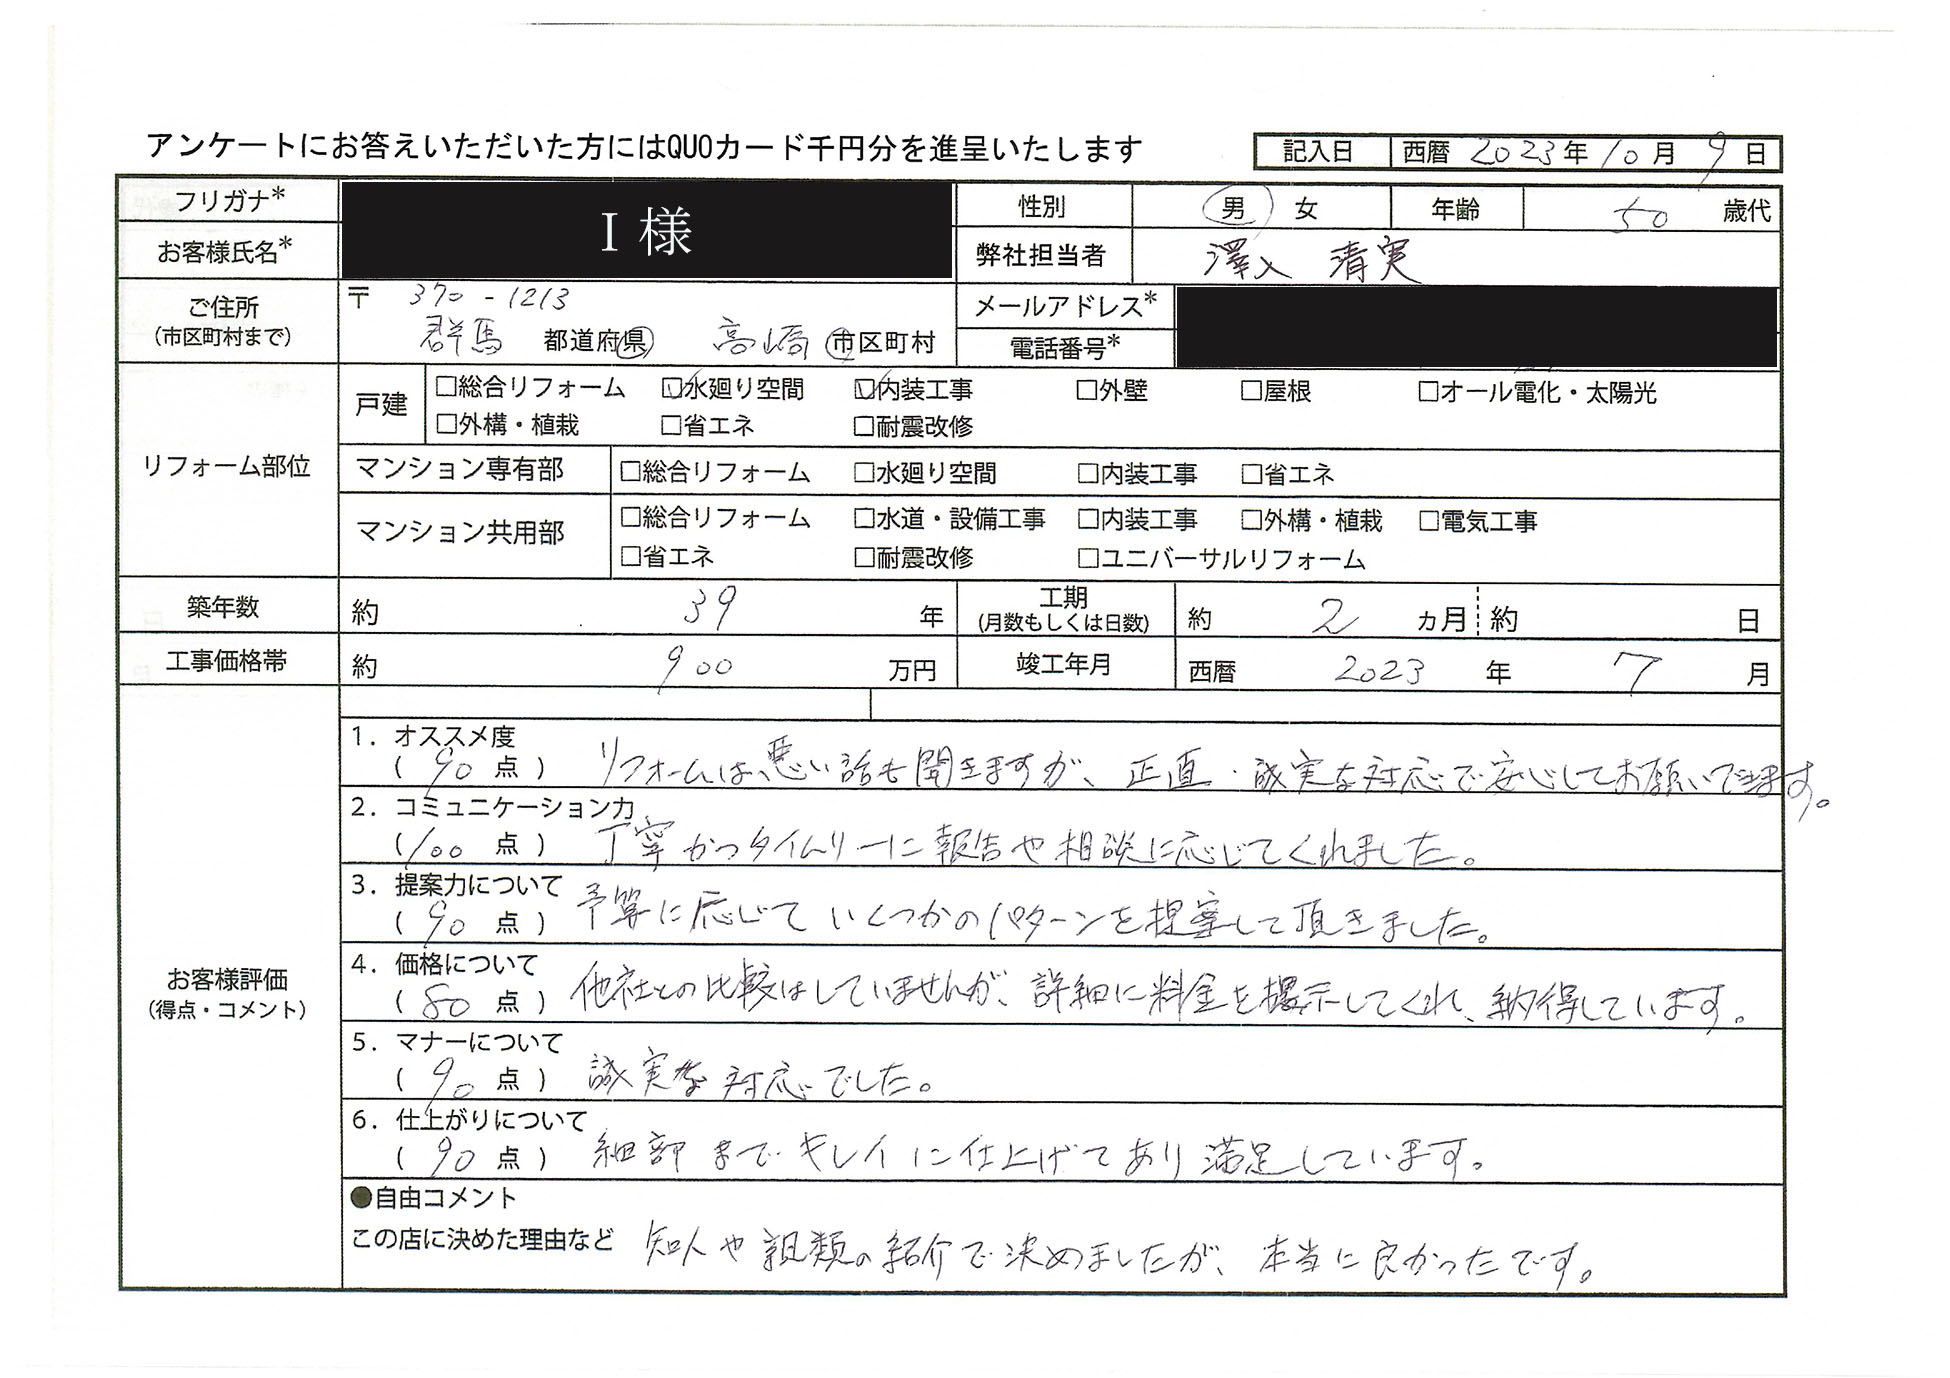 アンケートにお答えいただいた方にはQUOカード千円分を進呈いたします
記入日 西暦 2023年 10月 9日
フリガナ* I 様 性別 男 女 年齢 50 歳代
お客様氏名* 弊社担当者 澤入 清実
ご住所 〒 370-1213 メールアドレス*
(市区町村まで) 群馬 都道府県 高崎 市区町村 電話番号*
リフォーム部位
戸建 □総合リフォーム ☑水廻り空間 ☑内装工事 □外壁 □屋根 □オール電化・太陽光
□外構・植栽 □省エネ □耐震改修
マンション専有部 □総合リフォーム □水廻り空間 □内装工事 □省エネ
マンション共用部 □総合リフォーム □水道・設備工事 □内装工事 □外構・植栽 □電気工事
□省エネ □耐震改修 □ユニバーサルリフォーム
築年数 約 39 年 工期 (月数もしくは日数) 約 2 ヵ月 約 日
工事価格帯 約 900 万円 竣工年月 西暦 2023 年 7 月
お客様評価
(得点・コメント)
1. オススメ度
( 90 点 ) リフォームは、悪い話も聞きますが、正直・誠実な対応で安心してお願いできます。
2. コミュニケーション力
( 100 点 ) 丁寧かつタイムリーに報告や相談に応じてくれました。
3. 提案力について
( 90 点 ) 予算に応じていくつかのパターンを提案して頂きました。
4. 価格について
( 80 点 ) 他社との比較はしていませんが、詳細に料金を提示してくれ、納得しています。
5. マナーについて
( 90 点 ) 誠実な対応でした。
6. 仕上がりについて
( 90 点 ) 細部までキレイに仕上げてあり満足しています。
●自由コメント
この店に決めた理由など 知人や親類の紹介で決めましたが、本当に良かったです。